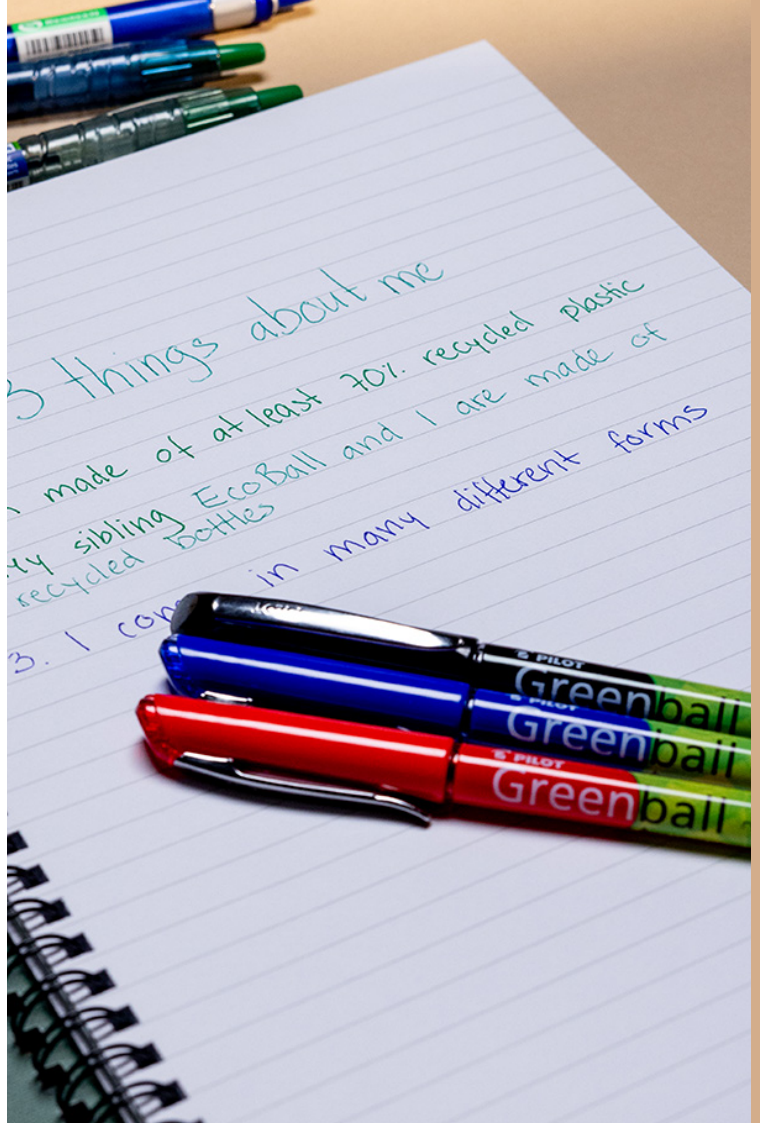 3 things about me
made of at least 70% recycled plastic
My sibling EcoBall and I are made of
recycled bottles
3. I come in many different forms
PILOT
Greenball
PILOT
Greenball
PILOT
Greenball